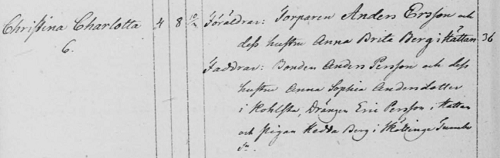 Christina Charlotta 4 8 Föräldrar: Torparen Anders Ersson och
6. dess hustru Anna Brita Berg i Kättan 36
Faddrar: Bonden Anders Persson och dess
hustru Anna Sophia Andersdotter
i Kohlsta, Drängen Eric Persson i Kattan
och Pigan Hedda Berg i